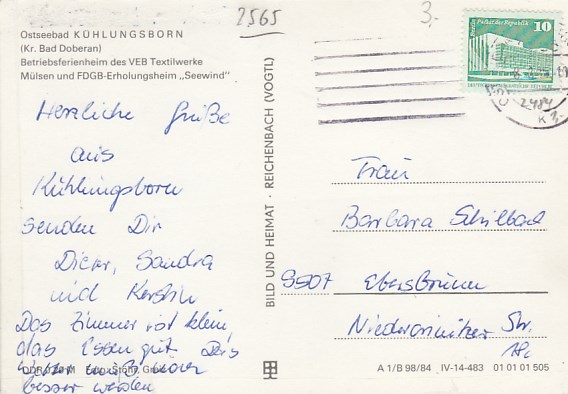 2565
3.-
Ostseebad KÜHLUNGSBORN
(Kr. Bad Doberan)
Betriebsferienheim des VEB Textilwerke
Mülsen und FDGB-Erholungsheim „Seewind"
10
Palast der Republik
2484
K 1,-
Herzliche Grüße
aus
Kühlungsborn
senden Dir
Sandra
und Kerstin
Das Zimmer ist klein,
das Essen gut. Das
besser werden
Frau
Barbara Schilbach
9507 Ebersbrunn
Str.
BILD UND HEIMAT · REICHENBACH (VOGTL)
A 1/B 98/84 IV-14-483 01 01 01 505